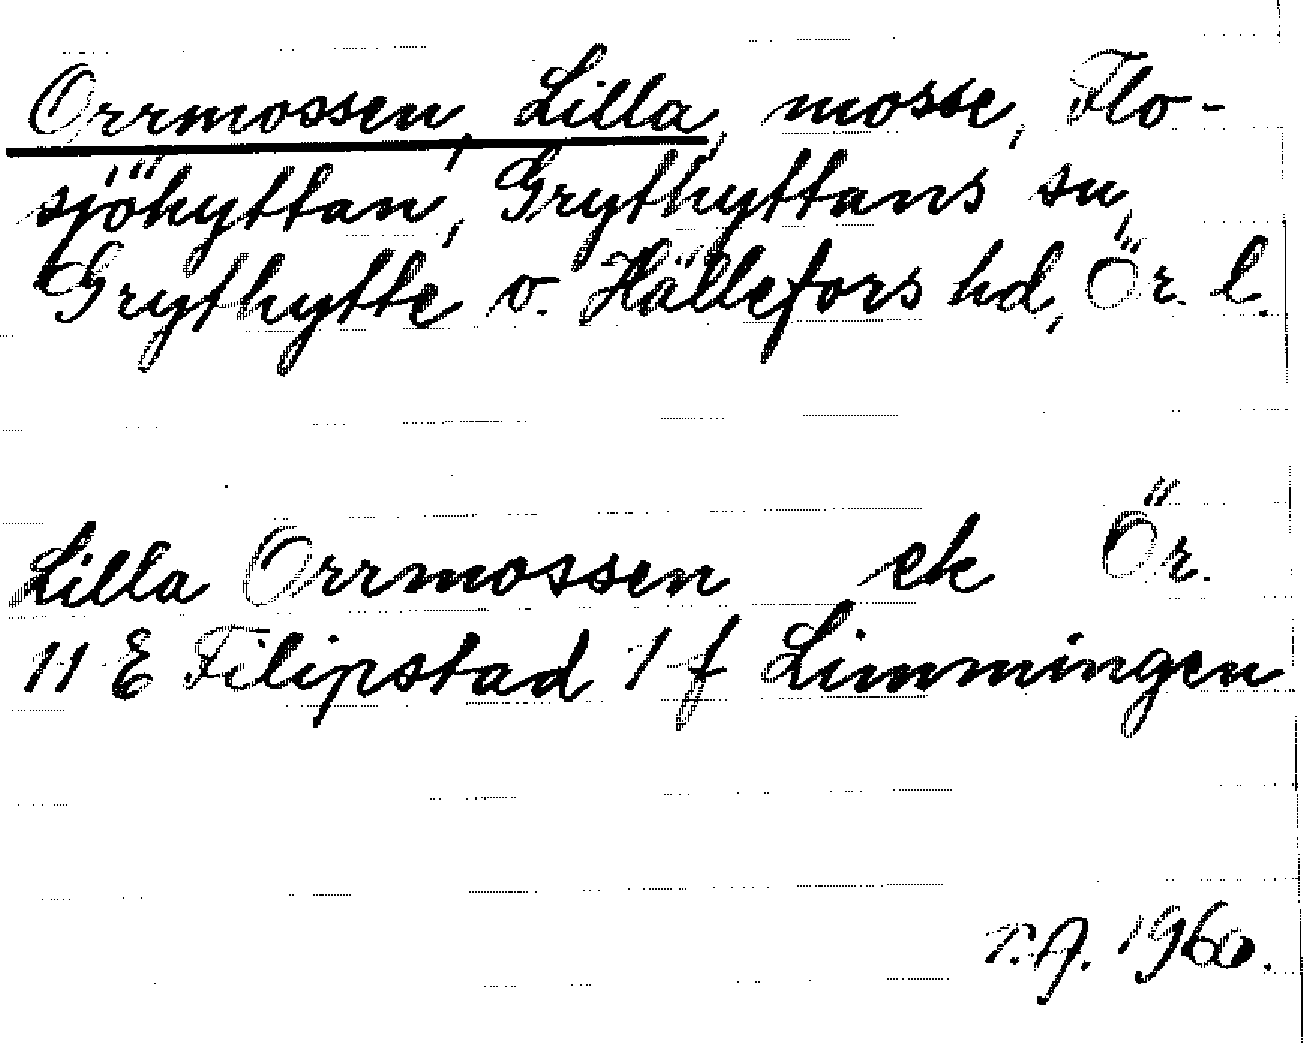 Orrmossen, Lilla, mosse, Flo-
sjöhyttan, Grythyttans sn,
Grythytte o. Hällefors hd, Ör. l.
Lilla Orrmossen ek Ör.
11 E Filipstad 1 f Limmingen
1960.